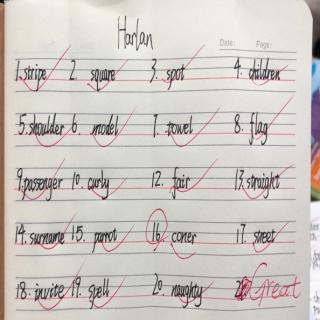 Harlan
Date: Page:
1. stripe 2. square 3. spot 4. children
5. shoulder 6. model 7. towel 8. flag
9. passenger 10. curly 12. fair 13. straight
14. surname 15. parrot 16. coner 17. street
18. invite 19. spell 20. naughty Great